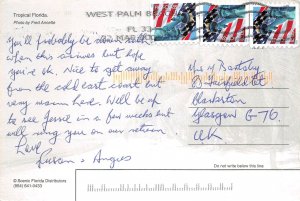 Tropical Florida.
Photo by Fred Annette
WEST PALM B
FL 33
You'll probably be
when this arrives but hope
you're OK. Nice to get away
from the cold east coast but
very warm here. We'll be up
to see Jessie in a few weeks but
will ring you on our return
Love
Susan + Angus
Mrs M
Fairfield Ct
Clarkston
Glasgow G-76.
UK
Do not write below this line.
© Scenic Florida Distributors
(954) 641-0433